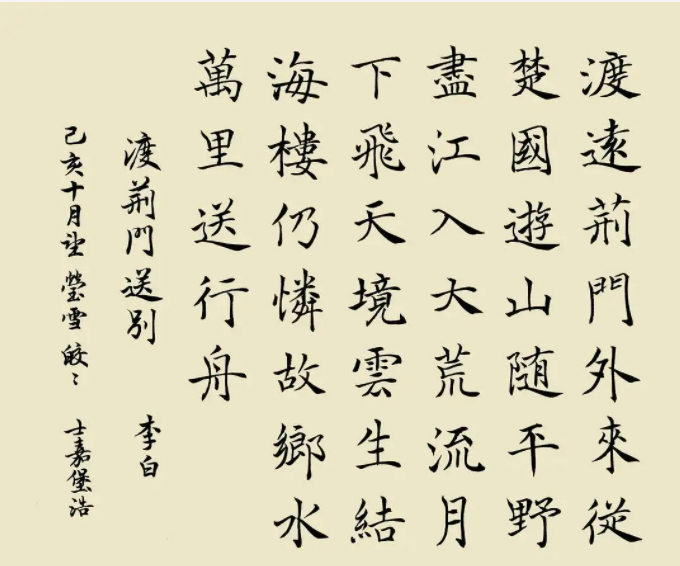 渡遠荊門外來從
楚國遊山随平野
盡江入大荒流月
下飛天境雲生結
海樓仍憐故鄉水
萬里送行舟
渡荊門送別 李白
己亥十月望 瑩雪皎〻 士嘉堡浩